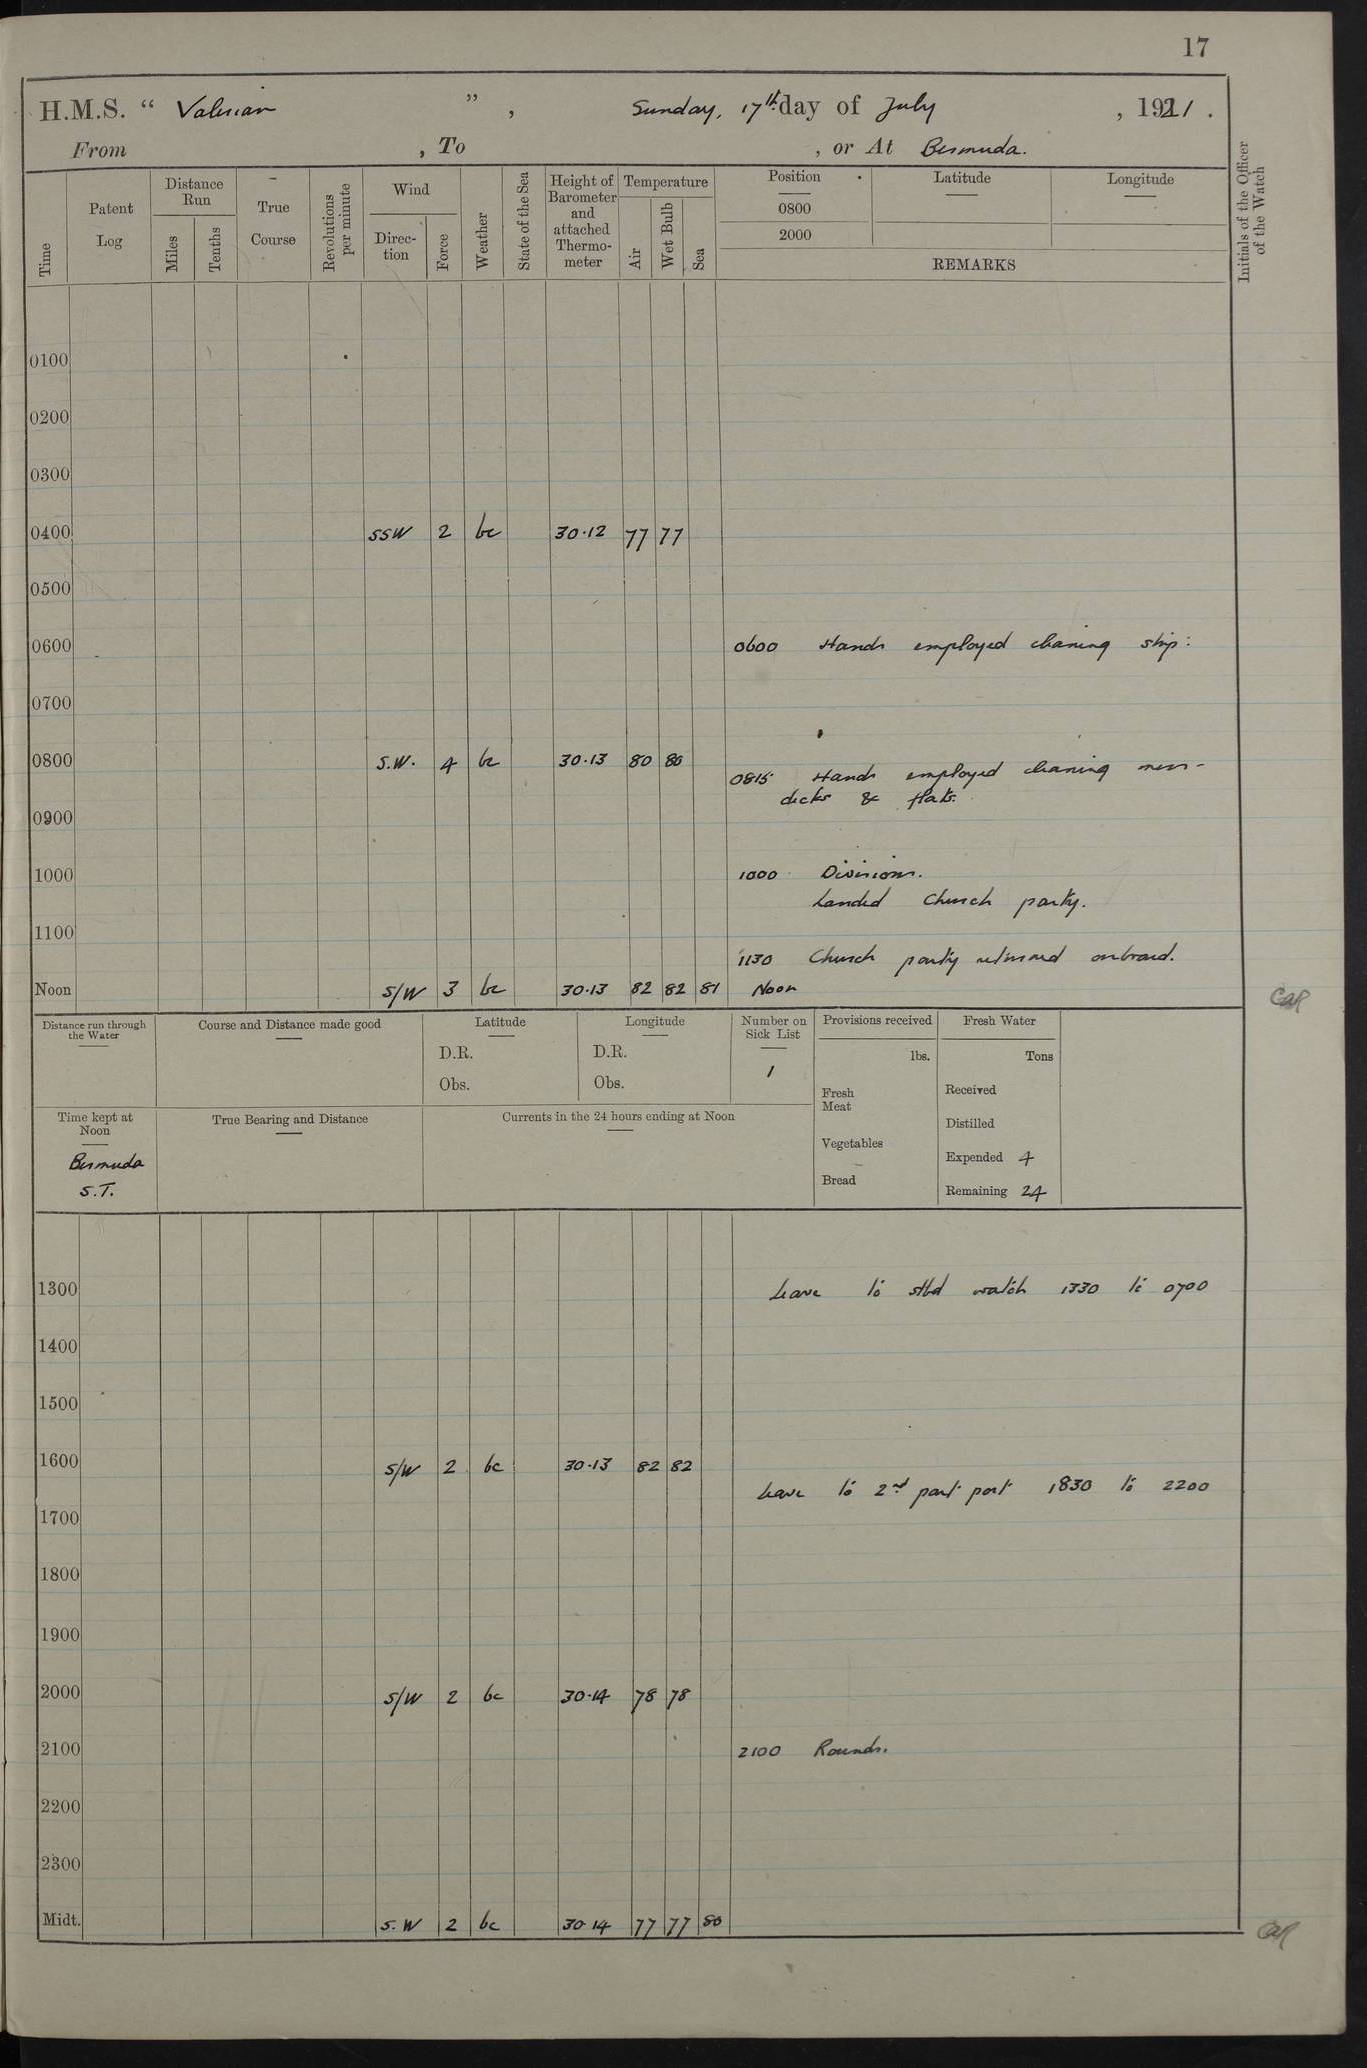 17
H.M.S. “ Valerian ” , Sunday, 17th day of July , 1921 .
From , To , or At Bermuda.
Time
Patent Log
Distance Run
Miles
Tenths
True Course
Revolutions per minute
Wind
Direc-tion
Force
Weather
State of the Sea
Height of Barometer and attached Thermo-meter
Temperature
Air
Wet Bulb
Sea
Position
0800
2000
Latitude
Longitude
REMARKS
Initials of the Officer of the Watch
0100
0200
0300
0400 SSW 2 bc 30.12 77 77
0500
0600 0600 Hands employed cleaning ship:
0700
0800 S.W. 4 bc 30.13 80 80
0815 Hands employed cleaning mess-
decks & flats.
0900
1000 1000 Divisions.
Landed Church party.
1100
1130 Church party returned onboard.
Noon S/W 3 bc 30.13 82 82 81 Noon
Distance run through the Water
Course and Distance made good
Latitude
D.R.
Obs.
Longitude
D.R.
Obs.
Number on Sick List
1
Provisions received
lbs.
Fresh Meat
Vegetables
Bread
Fresh Water
Tons
Received
Distilled
Expended 4
Remaining 24
Time kept at Noon
Bermuda
S.T.
True Bearing and Distance
Currents in the 24 hours ending at Noon
1300 Leave to stbd watch 1330 to 0700
1400
1500
1600 S/W 2 bc 30.13 82 82
Leave to 2nd part port 1830 to 2200
1700
1800
1900
2000 S/W 2 bc 30.14 78 78
2100 2100 Rounds.
2200
2300
Midt. S.W 2 bc 30.14 77 77 80